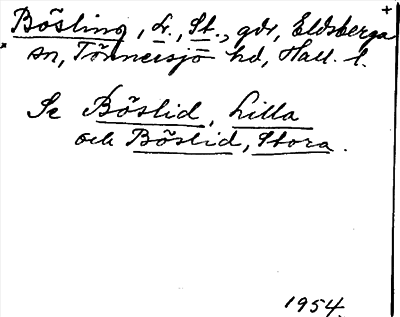 Bösling, L., St., gdr, Eldsberga
sn, Tönnersjö hd, Hall. l.
Se Böslid, Lilla
och Böslid, Stora.
1954.